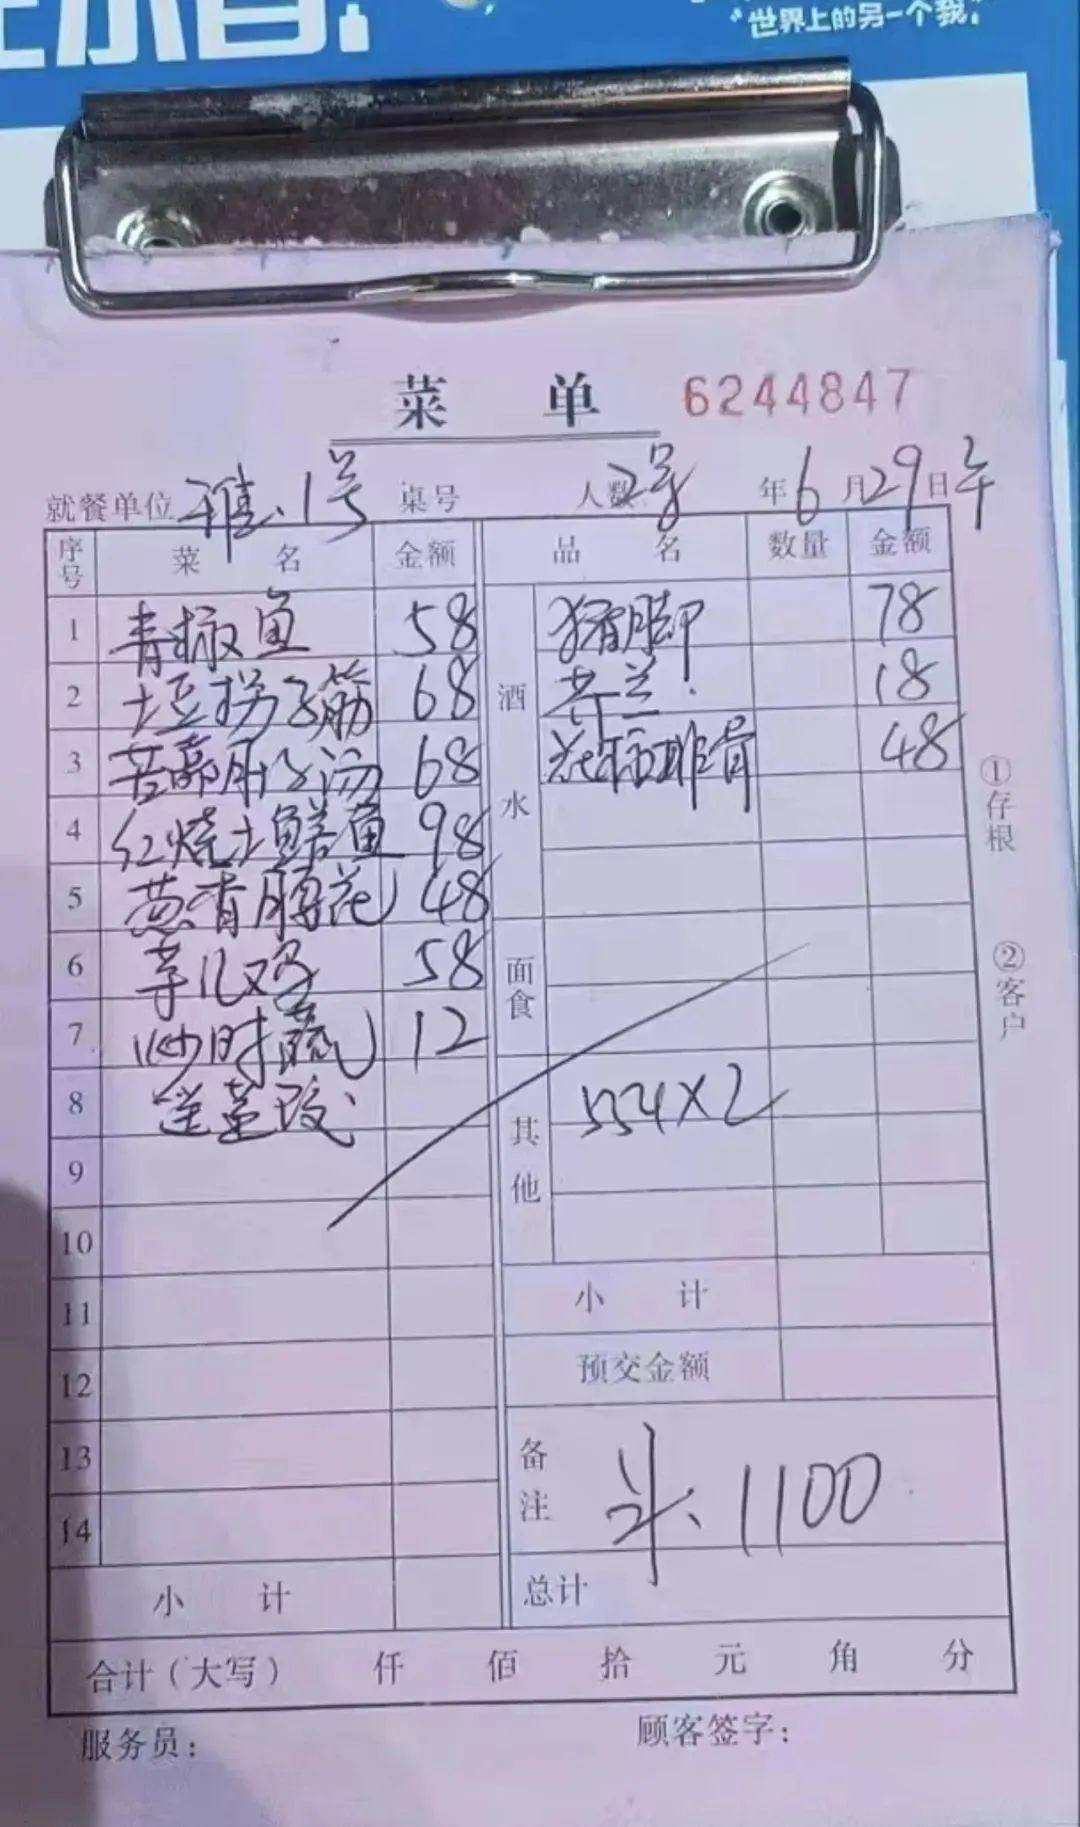 "世界上的另一个我"
菜 单 6244847
就餐单位 雅.1号 桌号 人数 2号 年6月29日午
序号 菜 名 金额 品 名 数量 金额
1 青椒鱼 58 酒水 猪脚 78
2 土豆拐子筋 68 芥兰. 18
3 肚子汤 68 排骨 48
4 红烧土鲢鱼 98
5 葱香腰花 48
6 芋儿鸡 58 面食
7 炒时蔬 12
8 其他 554×2
9
10
11 小 计
12 预交金额
13 备注 斗、1100
14
小 计 总计
合计(大写) 仟 佰 拾 元 角 分
服务员: 顾客签字:
①存根
②客户